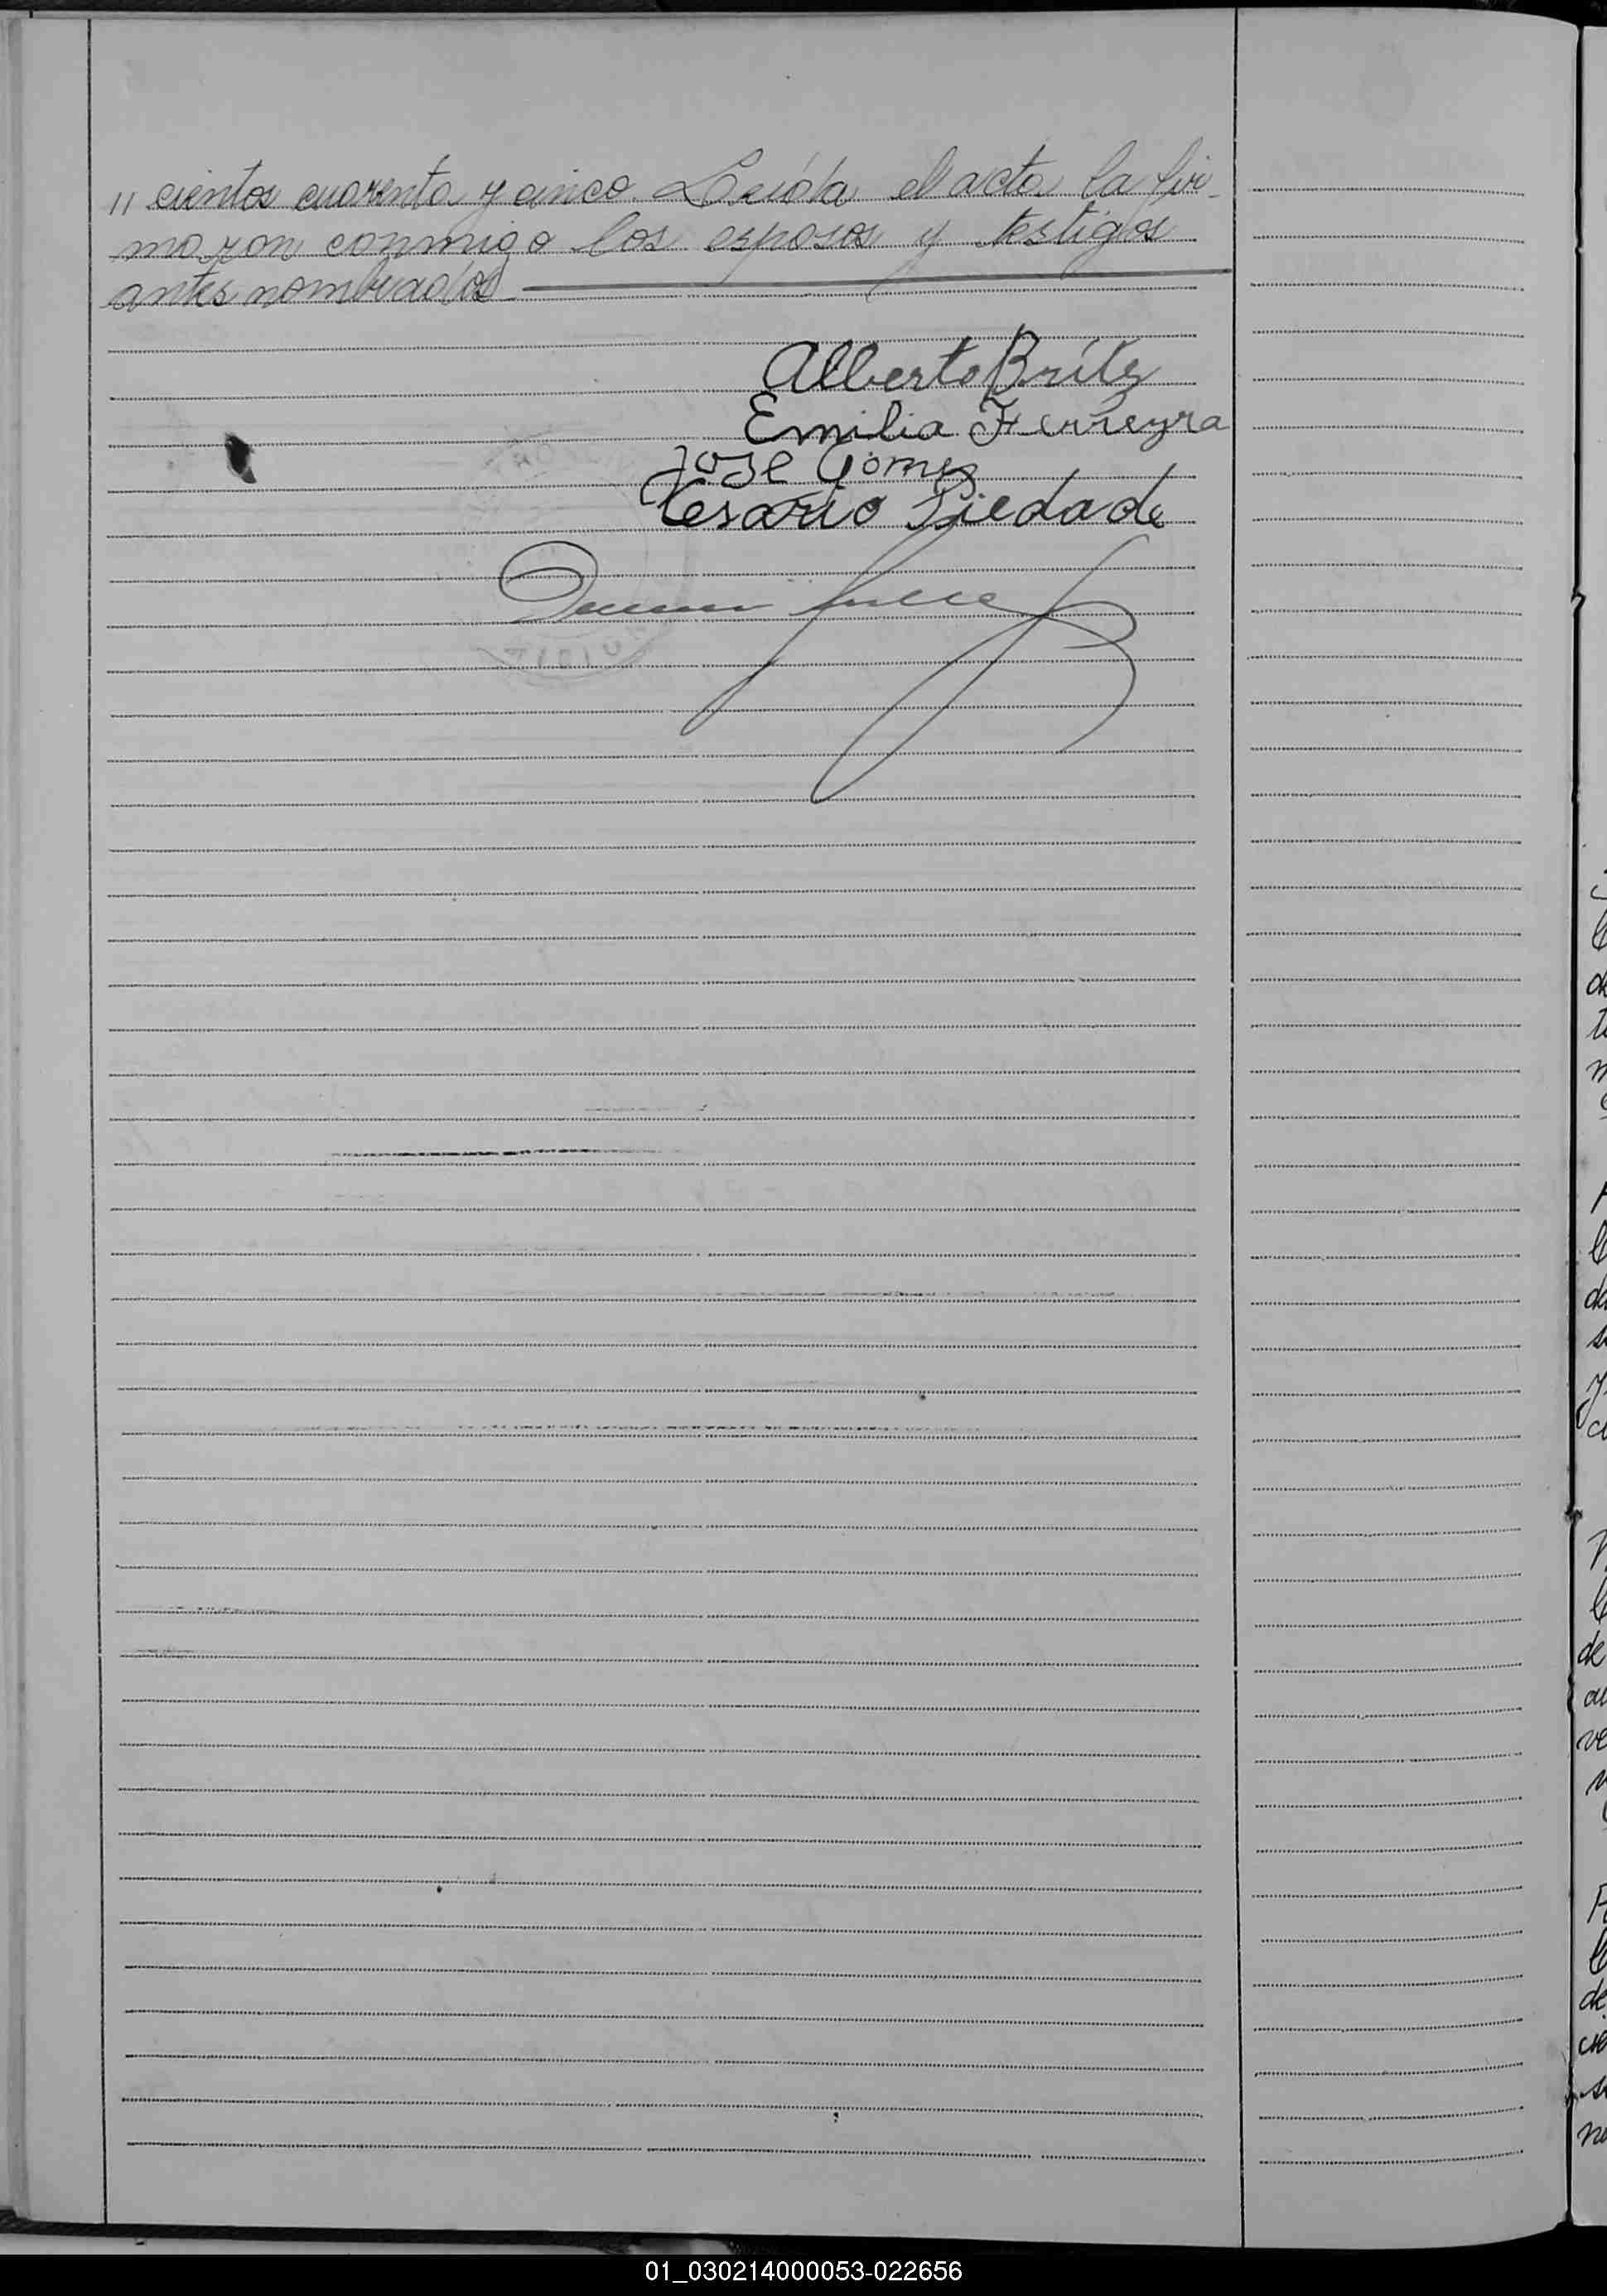 " cientos cuarenta y cinco. Leída el acta la fir-
maron conmigo los esposos y testigos
antes nombrados
Alberto Britez
Emilia Ferreyra
Jose Gomez
Cesario Piedade
01_030214000053-022656